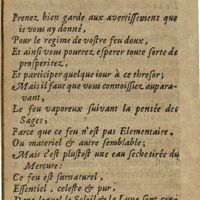 Prenez bien garde aux avertissemens que
ie vous ay donné,
Pour le regime de vostre feu doux,
Et ainsi vous pourrez esperer toute sorte de
prosperitez,
Et participer quelque iour à ce thresor;
Mais il faut que vous connoissiez aupara-
vant,
Le feu vaporeux suivant la pensée des
Sages,
Parce que ce feu n'est pas Elementaire,
Ou materiel & autre semblable;
Mais c'est plustost une eau seche tirée du
Mercure:
Ce feu est surnaturel,
Essentiel, celeste & pur,
Dans lequel le Soleil & la Lune sont